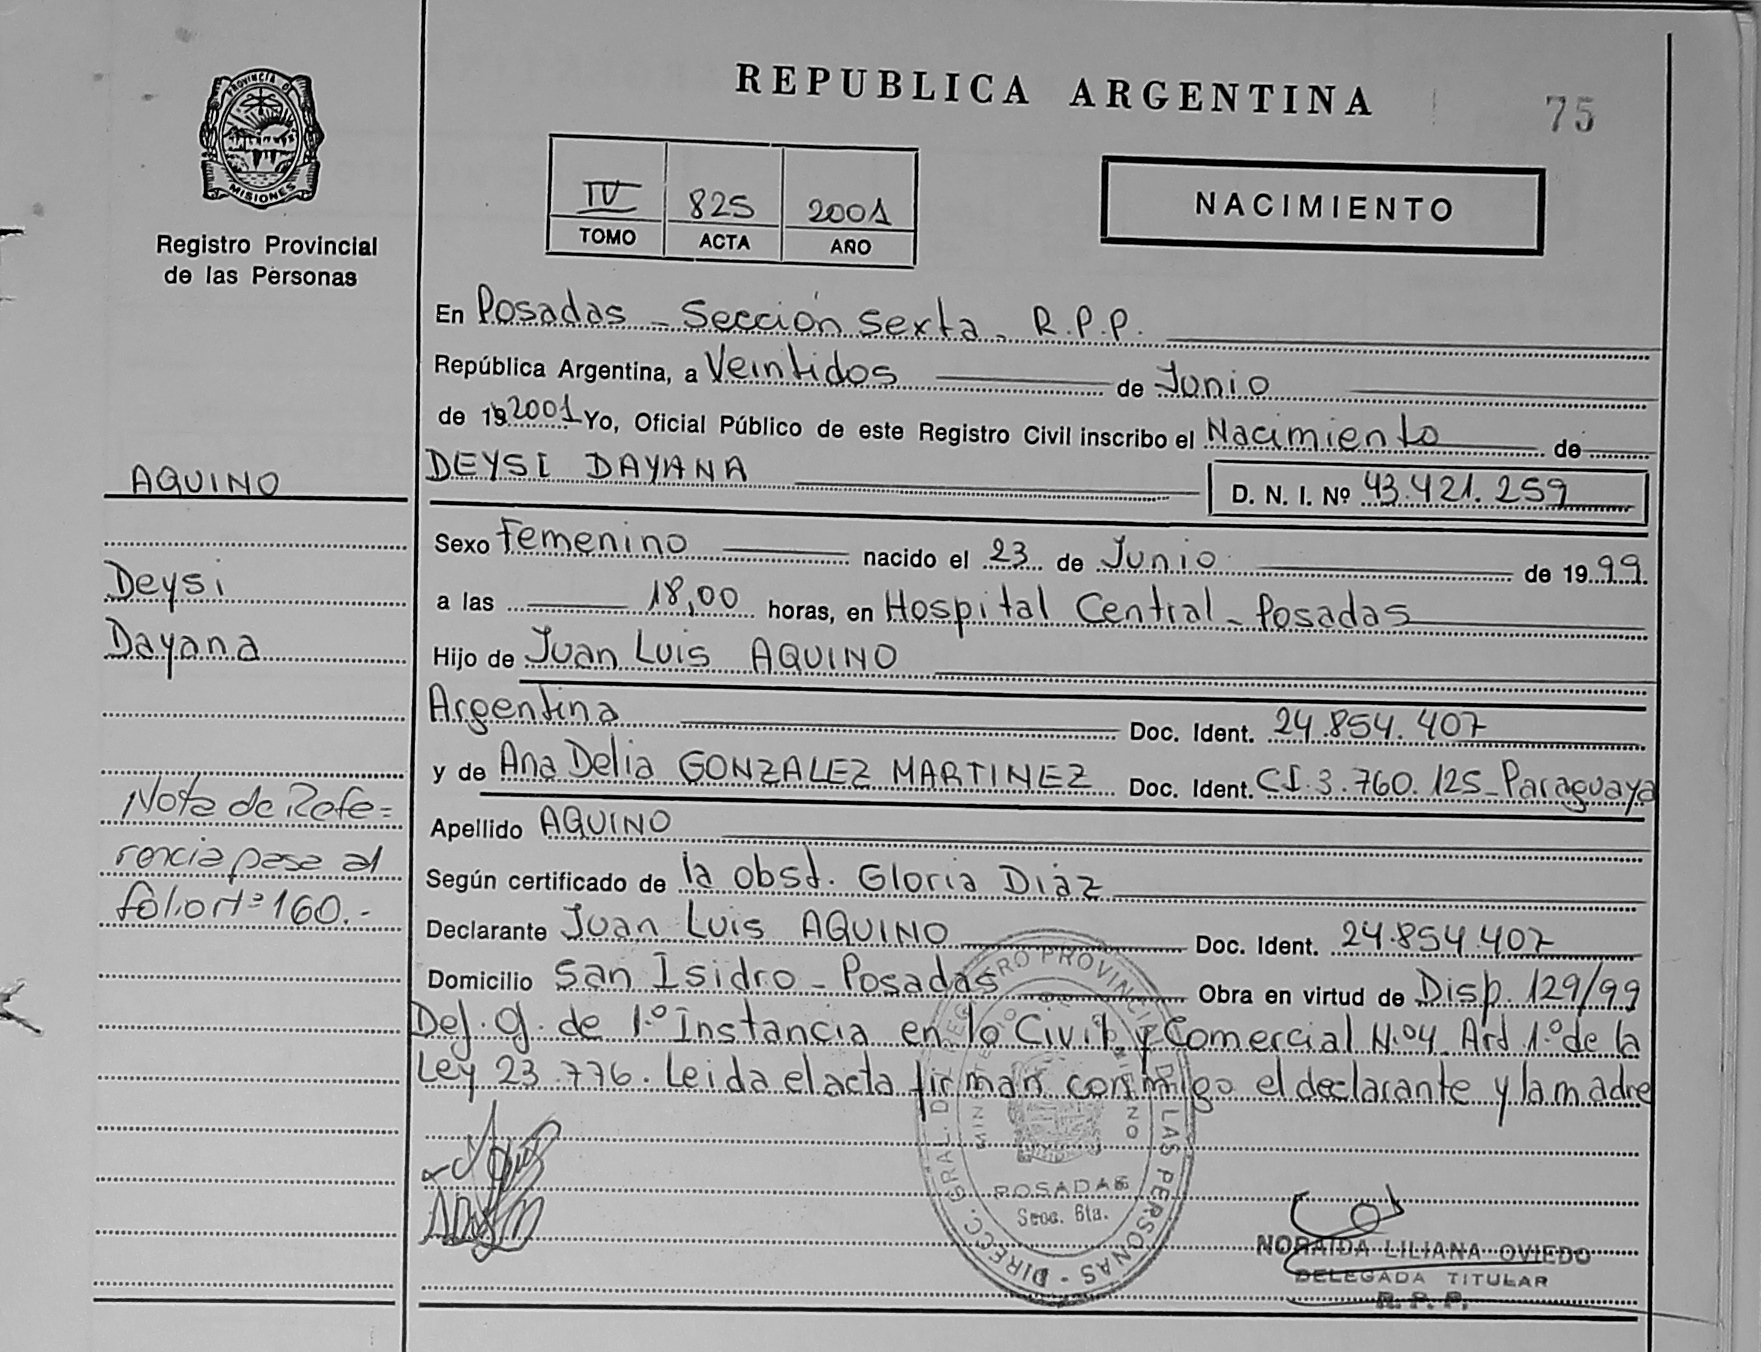 REPUBLICA ARGENTINA
75
PROVINCIA DE
MISIONES
Registro Provincial
de las Personas
IV 825 2001
TOMO ACTA AÑO
NACIMIENTO
En Posadas - Sección Sexta - R.P.P.
República Argentina, a Veintidos de Junio
de 19 2001 Yo, Oficial Público de este Registro Civil inscribo el Nacimiento de
DEYSI DAYANA D. N. I. Nº 43.421.259
Sexo Femenino nacido el 23 de Junio de 19 99.
a las 18,00 horas, en Hospital Central - Posadas
Hijo de Juan Luis AQUINO
Argentina Doc. Ident. 24.854.407
y de Ana Delia GONZALEZ MARTINEZ Doc. Ident. CI.3.760.125-Paraguaya
Apellido AQUINO
Según certificado de la obst. Gloria Diaz
Declarante Juan Luis AQUINO Doc. Ident. 24.854.407
Domicilio San Isidro - Posadas Obra en virtud de Disp. 129/99
Def. g. de 1º Instancia en lo Civil y Comercial N.º4 Art 1º de la
Ley 23.776. Leida el acta firman conmigo el declarante y la madre
AQUINO
Deysi
Dayana
Nota de Refe=
rencia pasa al
folio Nº 160.-
DIRECC. GRAL. DE REGISTRO PROVINCIAL DE LAS PERSONAS -
POSADAS
Secc. 6ta.
NORAIDA LILIANA OVIEDO
DELEGADA TITULAR
R. P. P.